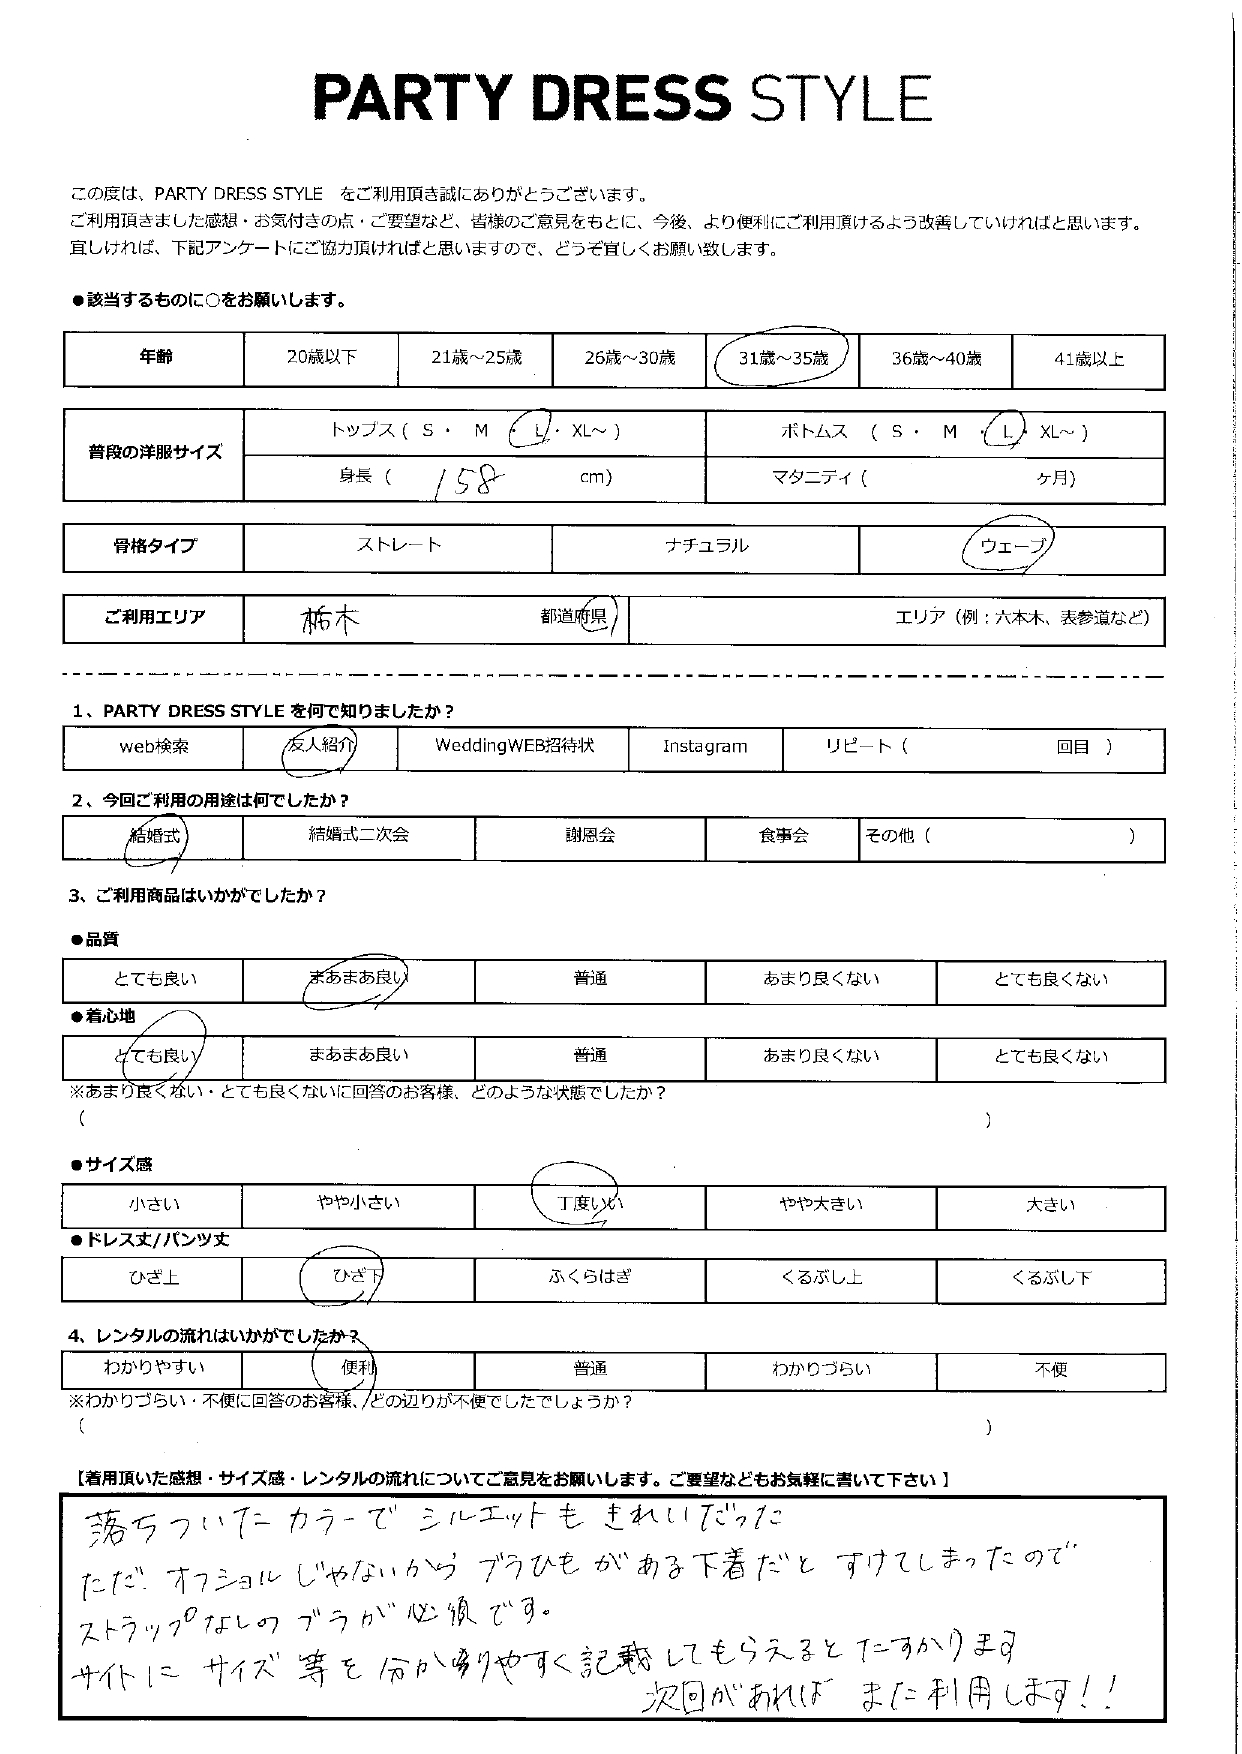 PARTY DRESS STYLE
この度は、PARTY DRESS STYLE をご利用頂き誠にありがとうございます。
ご利用頂きました感想・お気付きの点・ご要望など、皆様のご意見をもとに、今後、より便利にご利用頂けるよう改善していければと思います。
宜しければ、下記アンケートにご協力頂ければと思いますので、どうぞ宜しくお願い致します。
●該当するものに○をお願いします。
年齢 20歳以下 21歳～25歳 26歳～30歳 31歳～35歳 36歳～40歳 41歳以上
普段の洋服サイズ
トップス ( S ・ M ・ L ・ XL～ ) ボトムス ( S ・ M ・ L ・ XL～ )
身長 ( 158 cm) マタニティ ( ヶ月)
骨格タイプ ストレート ナチュラル ウェーブ
ご利用エリア 栃木 都道府県 エリア (例：六本木、表参道など)
1、PARTY DRESS STYLE を何で知りましたか？
web検索 友人紹介 WeddingWEB招待状 Instagram リピート ( 回目 )
2、今回ご利用の用途は何でしたか？
結婚式 結婚式二次会 謝恩会 食事会 その他 ( )
3、ご利用商品はいかがでしたか？
●品質
とても良い まあまあ良い 普通 あまり良くない とても良くない
●着心地
とても良い まあまあ良い 普通 あまり良くない とても良くない
※あまり良くない・とても良くないに回答のお客様、どのような状態でしたか？
( )
●サイズ感
小さい やや小さい 丁度いい やや大きい 大きい
●ドレス丈/パンツ丈
ひざ上 ひざ下 ふくらはぎ くるぶし上 くるぶし下
4、レンタルの流れはいかがでしたか？
わかりやすい 便利 普通 わかりづらい 不便
※わかりづらい・不便に回答のお客様、どの辺りが不便でしたでしょうか？
( )
【着用頂いた感想・サイズ感・レンタルの流れについてご意見をお願いします。ご要望などもお気軽に書いて下さい】
落ちついたカラーで シルエットも きれいだった
ただ、オフショルじゃないから ブラひもがある下着だと すけてしまったので
ストラップなしのブラが必須です。
サイトに サイズ等を分か りやすく記載してもらえると たすかります
次回があれば また利用します!!